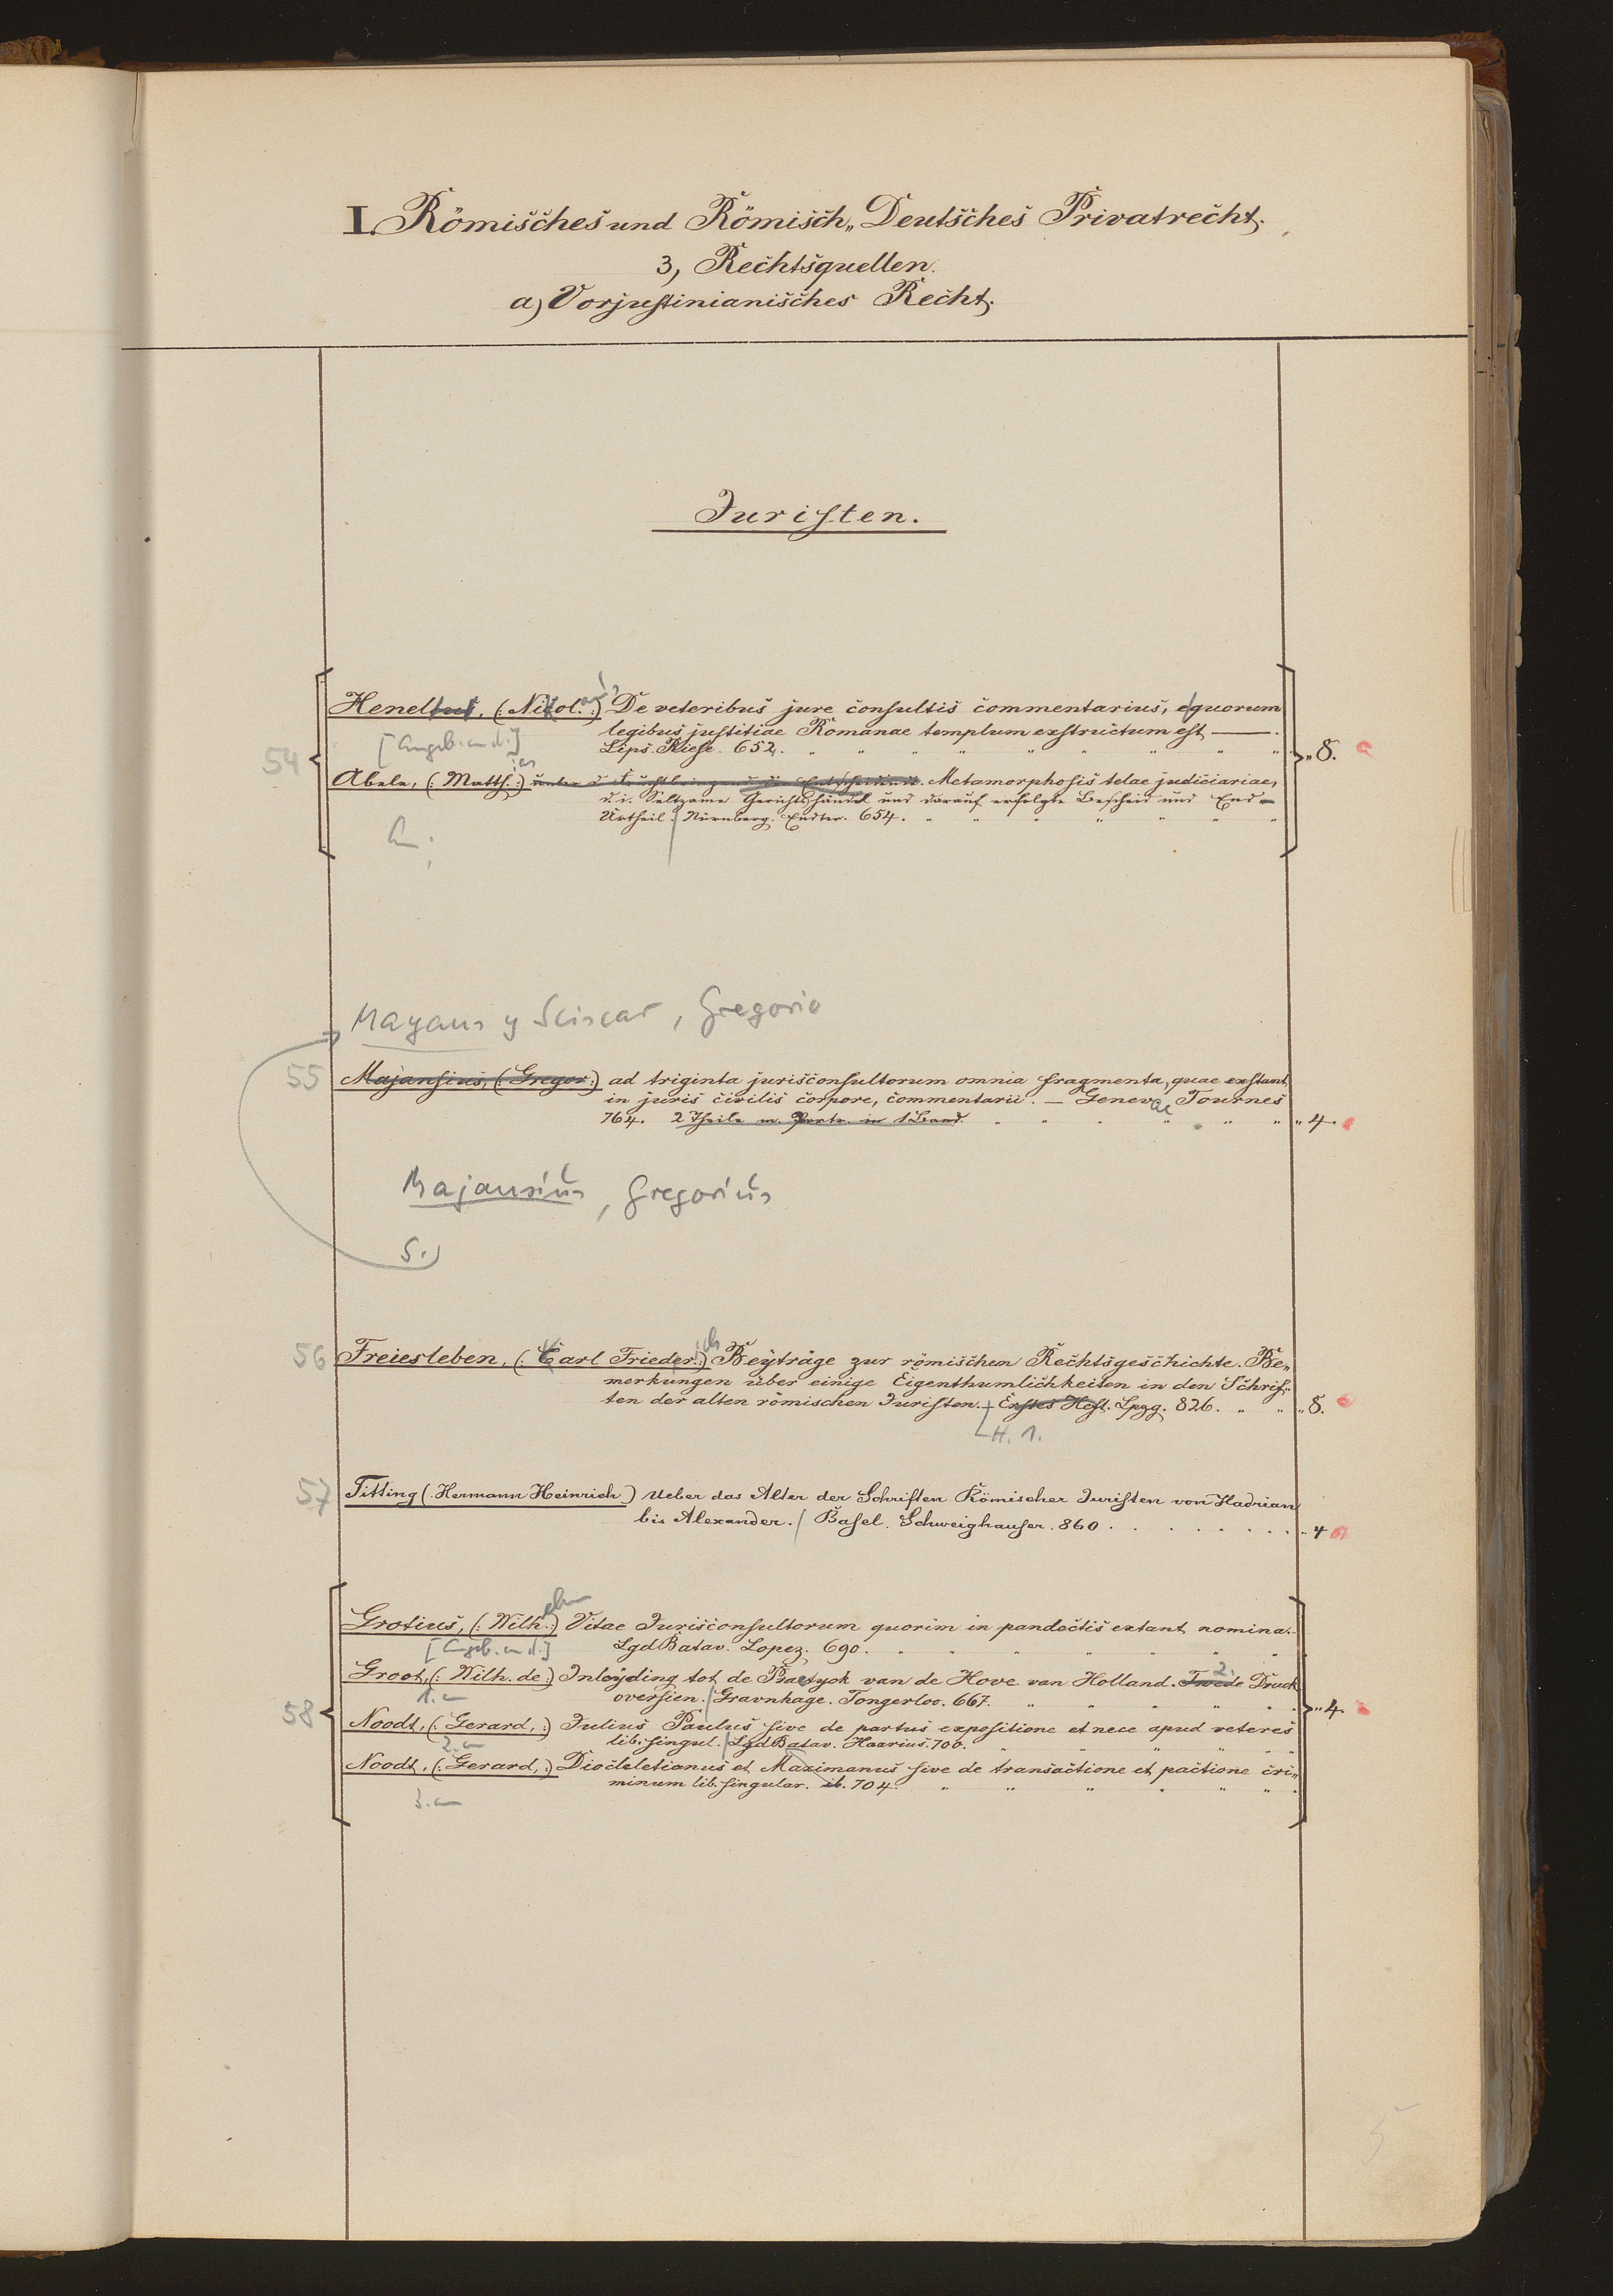 I. Römisches und Römisch„ Deutsches Privatrecht.
3, Rechtsquellen.
a) Vorjustinianisches Recht.
Juristen.
54
Henelius, (: Nicol. :) De veteribus jure consultis commentarius, quorum
legibus justitiae Romanae templum exstructum est —.
[Angeb. an d.:]
Lips. Riese. 652. „ 8.
Abele, (: Matth. :) Metamorphosis telae judiciariae,
d. i. Seltzame Gerichtshändel und darauf erfolgte Bescheid und End-
Urtheil. Nürnberg. Endter. 654.
Mayans y Sciscar, Gregorio
55 Majansius, (: Gregor :) ad triginta jurisconsultorum omnia fragmenta, quae exstant
in juris civilis corpore, commentarii. — Genevae Tournes
764. 2 Theile m. Portr. in 1 Band. „ 4.
Majansius, Gregorius
s.
56 Freiesleben, (: Carl Friedr. :) Beyträge zur römischen Rechtsgeschichte. Be„
merkungen über einige Eigenthumlichkeiten in den Schrif„
ten der alten römischen Juristen. Erstes Heft. Lpzg. 826. „ 8.
H. 1.
57 Fitting (: Hermann Heinrich) Ueber das Alter der Schriften Römischer Juristen von Hadrian
bis Alexander. Basel. Schweighauser. 860 „ 4
Grotius, (: Wilh. :) Vitae Jurisconsultorum quorim in pandectis extant nomina.
[Angeb. an d:] LgdBatav. Lopez. 690.
Groot, (: Wilh. de :) Inleyding tot de Practyck van de Hove van Holland. Twede 2. Druck
1. oversien. Gravnhage. Tongerloo. 667.
58 „ 4.
Noodt, (: Gerard, :) Julius Paulus sive de partus expositione et nece apud veteres
2. lib. singul. LgdBatav. Haarius. 700.
Noodt, (: Gerard, :) Diocleletianus et Maximanus sive de transactione et pactione cri„
minum lib. singular. ib. 704.
3.